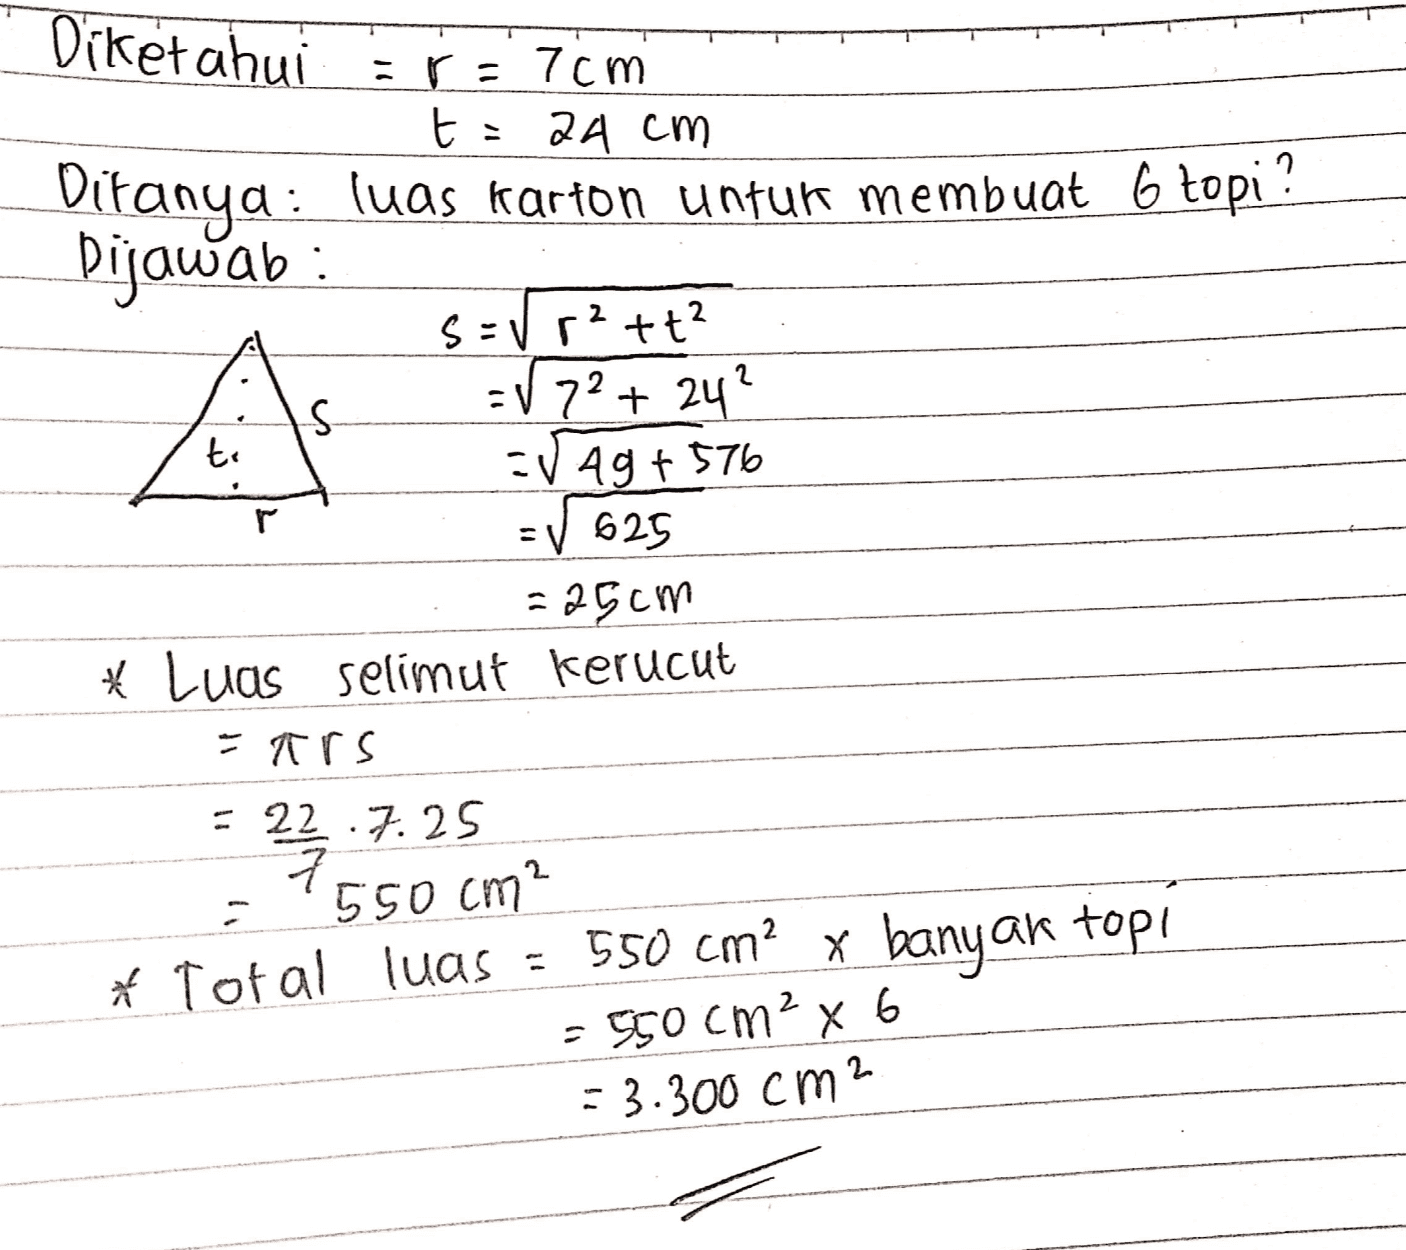 Diketahui = r = 7cm
t = 24 cm
Ditanya: luas karton untuk membuat 6 topi?
Dijawab :
s = √r² + t²
= √7² + 24²
= √49 + 576
= √625
= 25cm
s
t
r
* Luas selimut kerucut
= πrs
= 22/7 . 7. 25
= 550 cm²
* Total luas = 550 cm² x banyak topi
= 550 cm² x 6
= 3.300 cm²